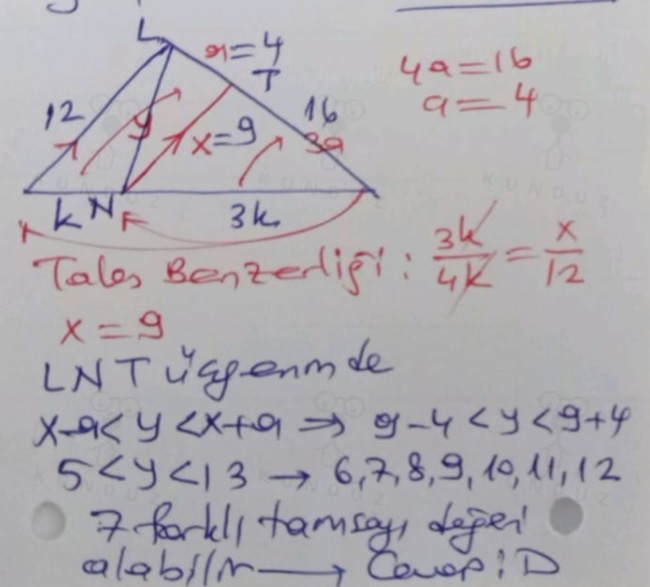 L
a=4
T
4a=16
a=4
12
y
x=9
16
3a
k N 3k
Tales Benzerliği: 3k/4k = x/12
x=9
LNT üçgeninde
x-a<y<x+a ⇒ 9-4<y<9+4
5<y<13 → 6,7,8,9,10,11,12
7 farklı tamsayı değeri
alabilir → Cevap: D